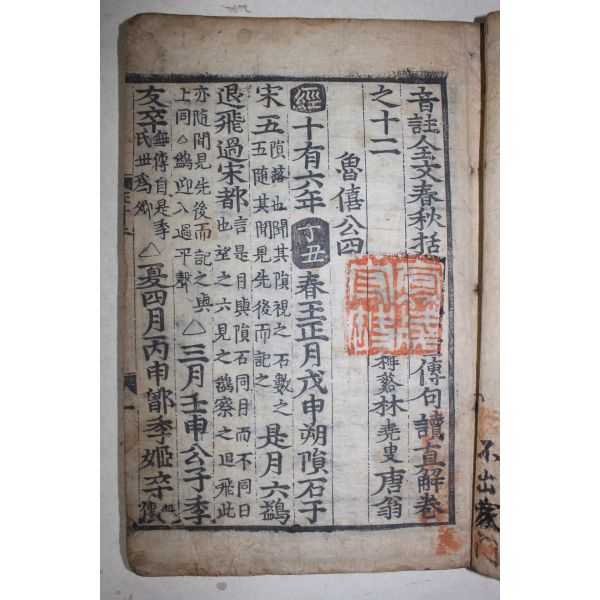 音註全文春秋括
傳句讀直解卷
之十二
林堯叟 唐翁
魯僖公四
經十有六年丁丑春王正月戊申朔隕石于
宋五隕落也聞其隕視之石數之五隨其聞見先後而記之是月六鷁
退飛過宋都言是月與隕石同月而不同日也望之六見之鷁察之退飛此
亦隨聞見先後而記之與上同△鷁迎入過平聲△三月壬申公子季
友卒無傳自是季氏世爲卿△夏四月丙申鄫季姬卒
不出